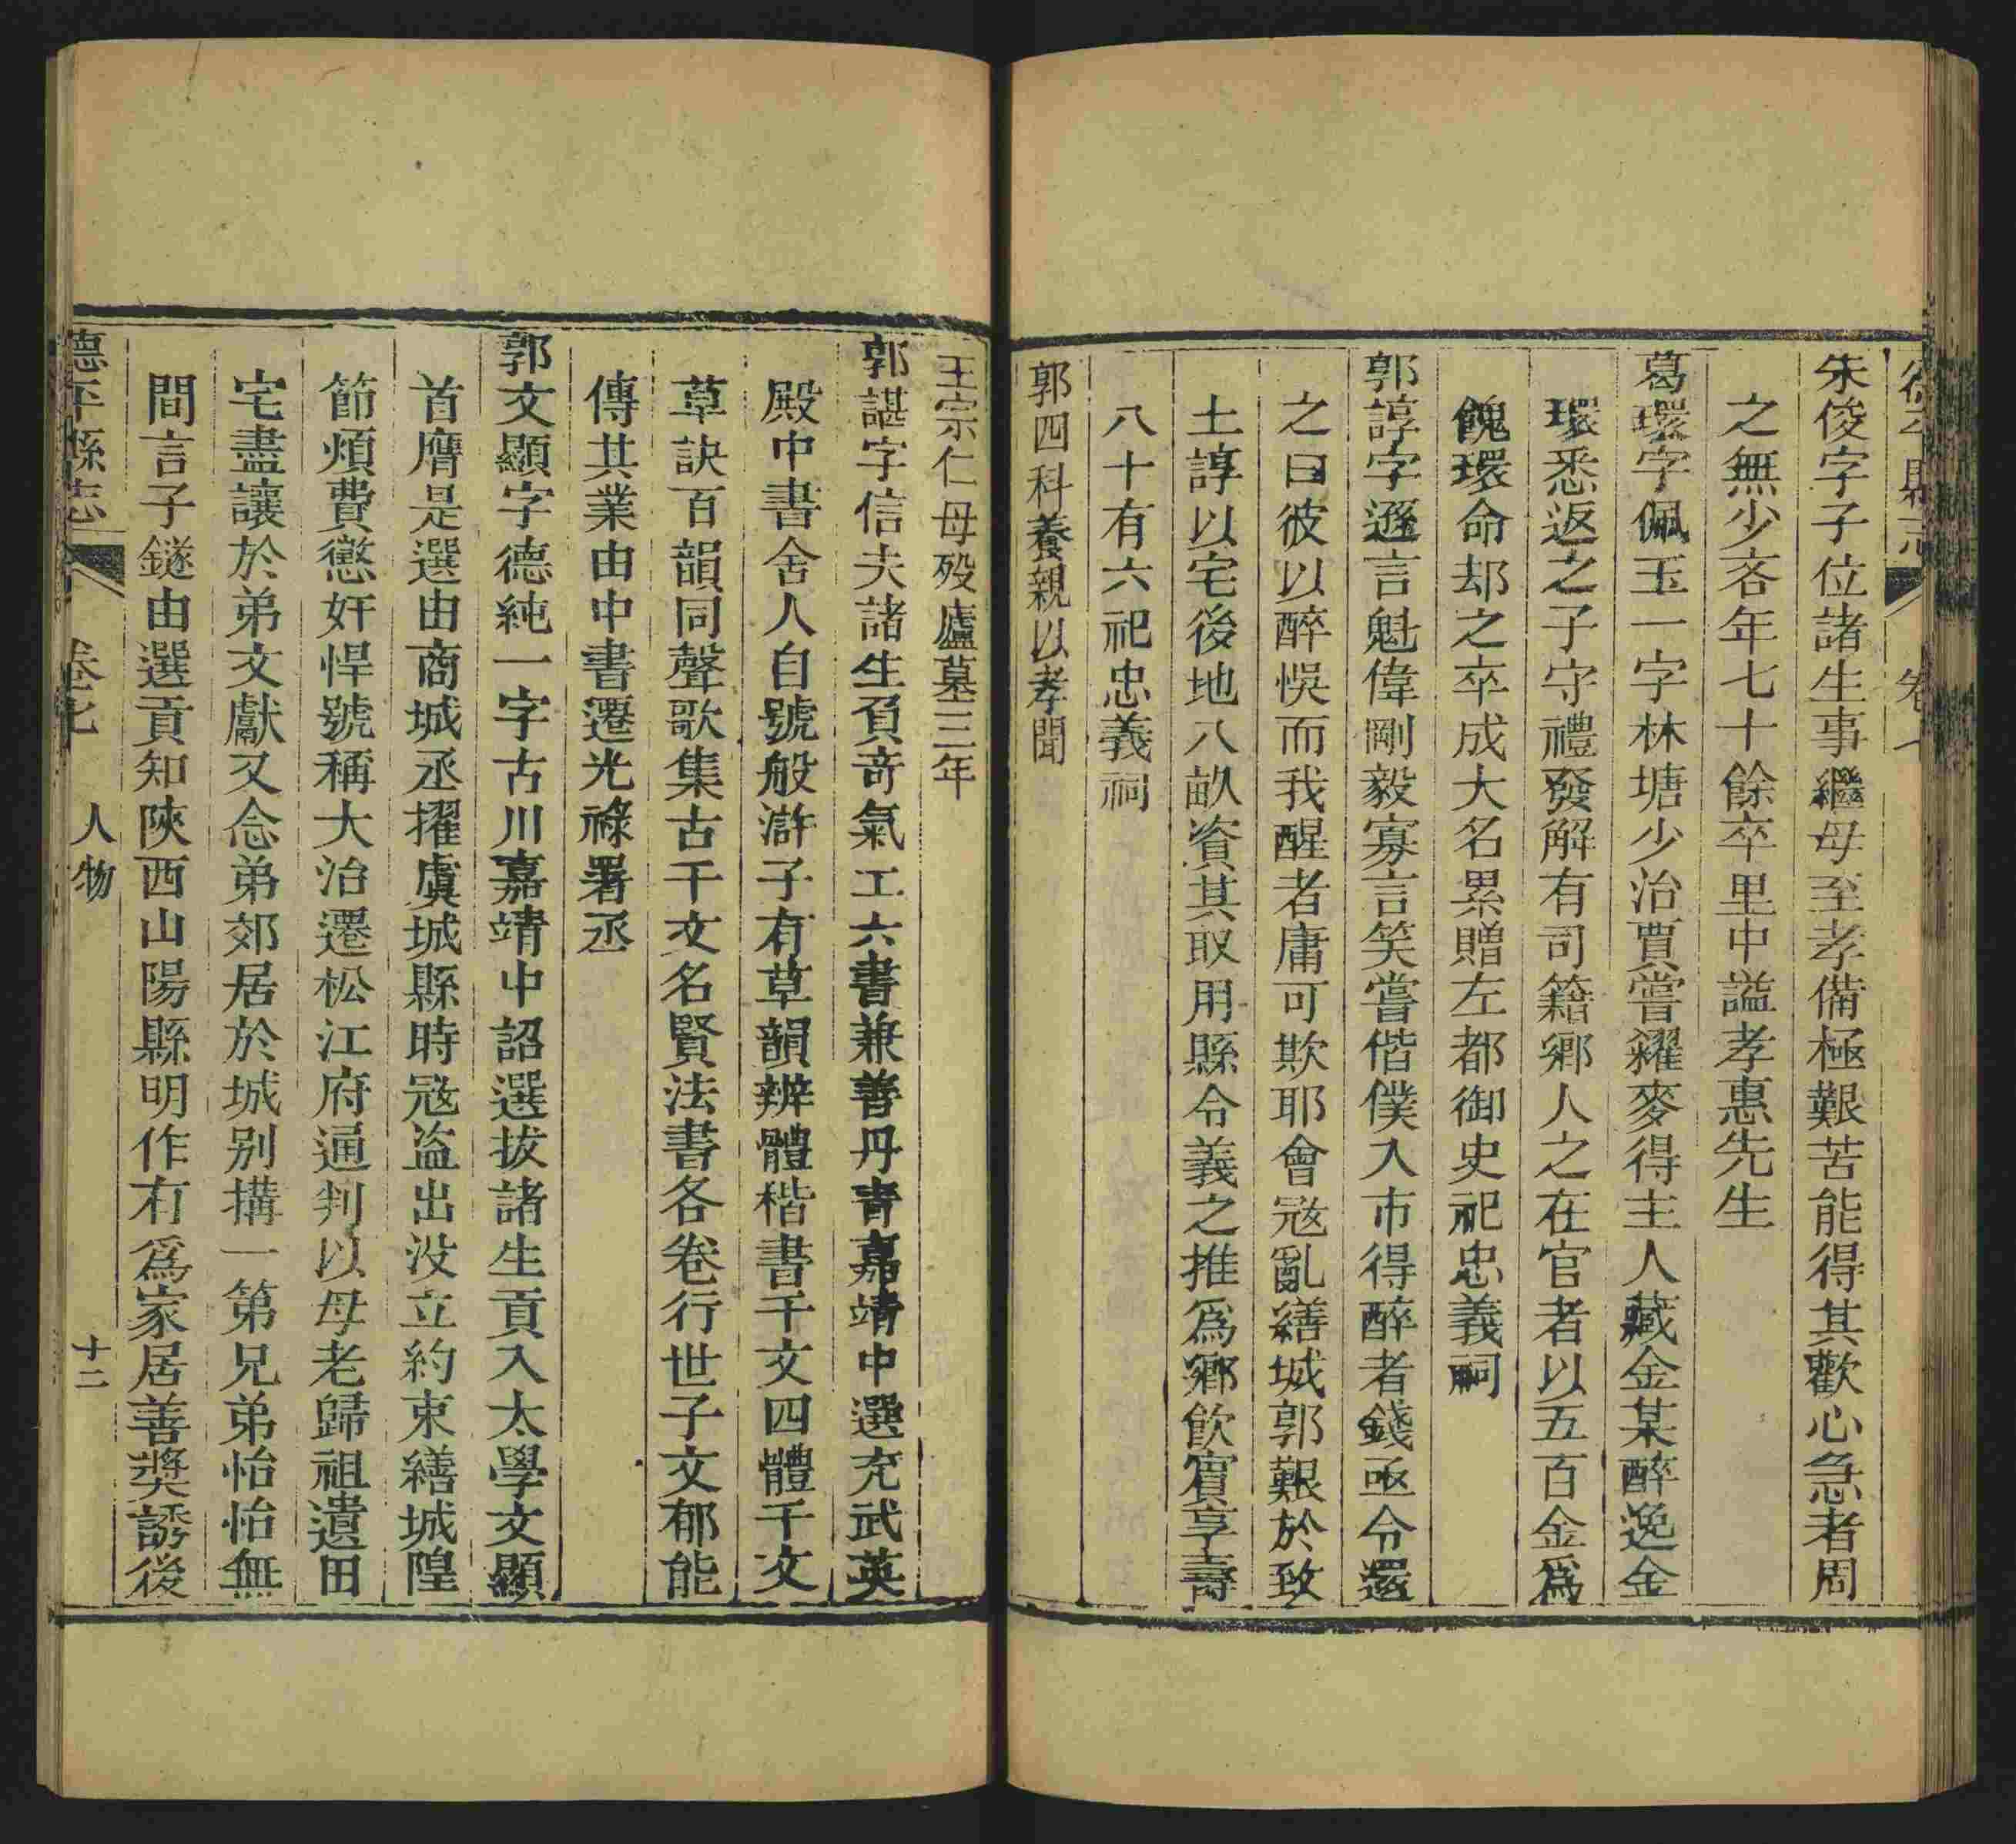 德平縣志 卷七
朱俊字子位諸生事繼母至孝備極艱苦能得其歡心急者周
之無少吝年七十餘卒里中謚孝惠先生
葛環字佩玉一字林塘少治賈嘗糴麥得主人藏金某醉逸金
環悉返之子守禮發解有司籍鄉人之在官者以五百金爲
餽環命却之卒成大名累贈左都御史祀忠義祠
郭諄字遜言魁偉剛毅寡言笑嘗偕僕入市得醉者錢亟令還
之曰彼以醉悞而我醒者庸可欺耶會㓂亂繕城郭艱於致
土諄以宅後地八畝資其取用縣令義之推爲鄉飲賓享壽
八十有六祀忠義祠
郭四科養親以孝聞
王宗仁母殁廬墓三年
郭諶字信夫諸生負奇氣工六書兼善丹青嘉靖中選充武英
殿中書舍人自號般滸子有草韻辨體楷書千文四體千文
草訣百韻同聲歌集古千文名賢法書各卷行世子文郁能
傳其業由中書遷光祿署丞
郭文顯字德純一字古川嘉靖中詔選拔諸生貢入太學文顯
首膺是選由商城丞擢虞城縣時㓂盗出没立約束繕城隍
節煩費懲奸悍號稱大治遷松江府通判以母老歸祖遺田
宅盡讓於弟文獻又念弟郊居於城别搆一第兄弟怡怡無
間言子鐩由選貢知陝西山陽縣明作有爲家居善獎誘後
德平縣志 卷七 人物 十二